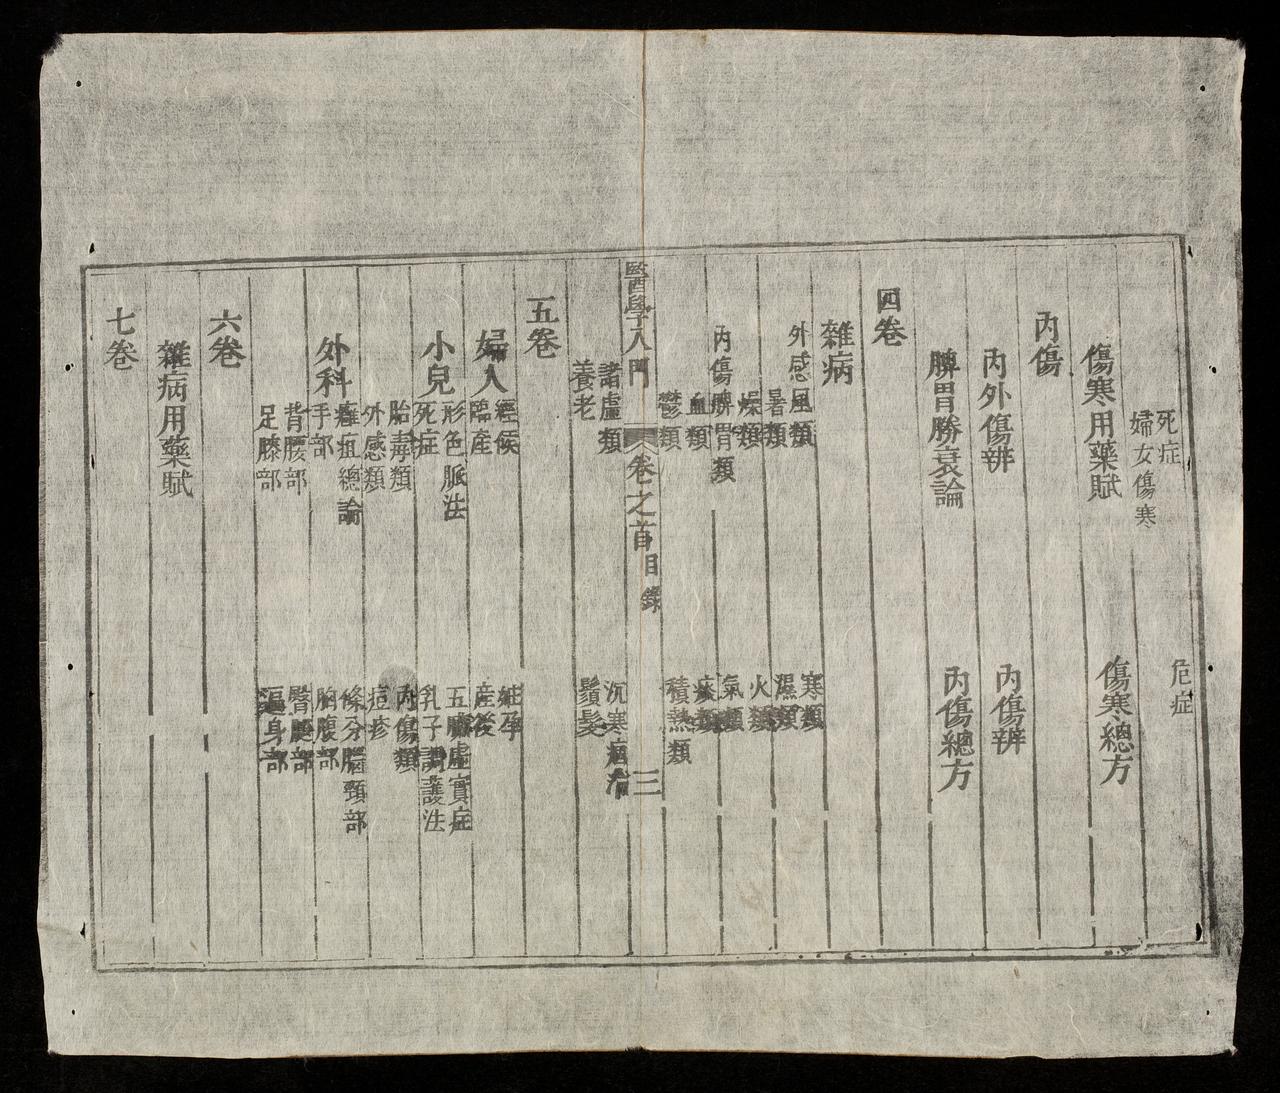 死症 危症
婦女傷寒
傷寒用藥賦 傷寒總方
內傷
內外傷辨 內傷辨
脾胃勝衰論 內傷總方
四卷
雜病
外感風類 寒類
暑類 濕類
燥類 火類
內傷脾胃類 氣類
血類 痰類
鬱類 積熱類
醫學入門 卷之首目錄 三
諸虛類 沉寒痼冷
養老 鬚髮
五卷
婦人經候 姙孕
臨產 產後
小兒形色脈法 五臟虛實症
死症 乳子調護法
胎毒類 內傷類
外感類 痘疹
外科癰疽總論 條分腦頸部
手部 胸腹部
背腰部 臀腿部
足膝部 遍身部
六卷
雜病用藥賦
七卷